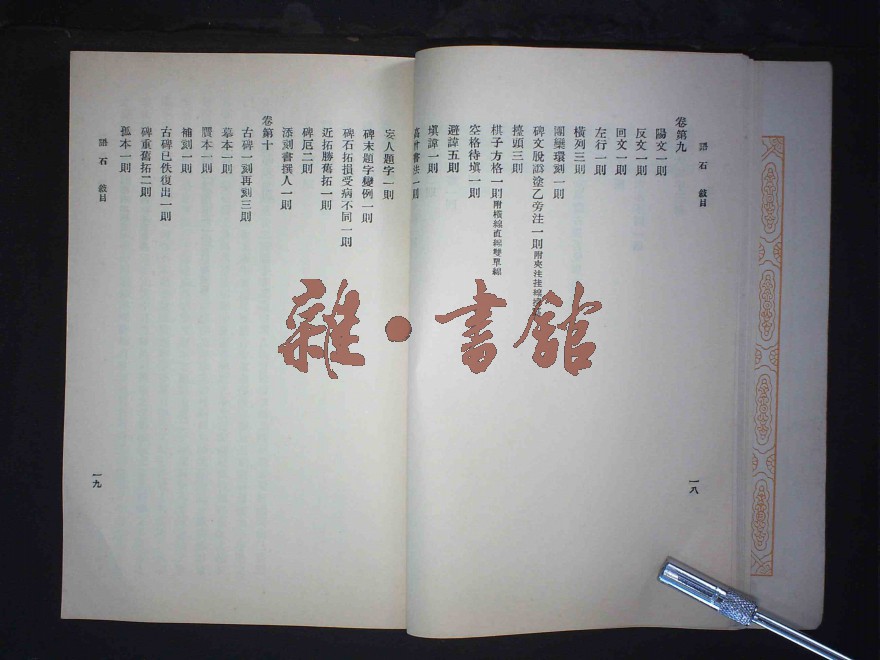 語石 敍目
卷第九
陽文一則
反文一則
回文一則
左行一則
橫列三則
團欒環刻一則
碑文脫誤塗乙旁注一則附夾注挂線
擡頭三則
棋子方格一則附橫線直線雙單線
空格待填一則
避諱五則
填諱一則
書法一則
一八
妄人題字一則
碑末題字變例一則
碑石拓損受病不同一則
近拓勝舊拓一則
碑厄二則
添刻書撰人一則
卷第十
古碑一刻再刻三則
摹本一則
贋本一則
補刻一則
古碑已佚復出一則
碑重舊拓二則
孤本一則
語石 敍目
一九
雜·書館